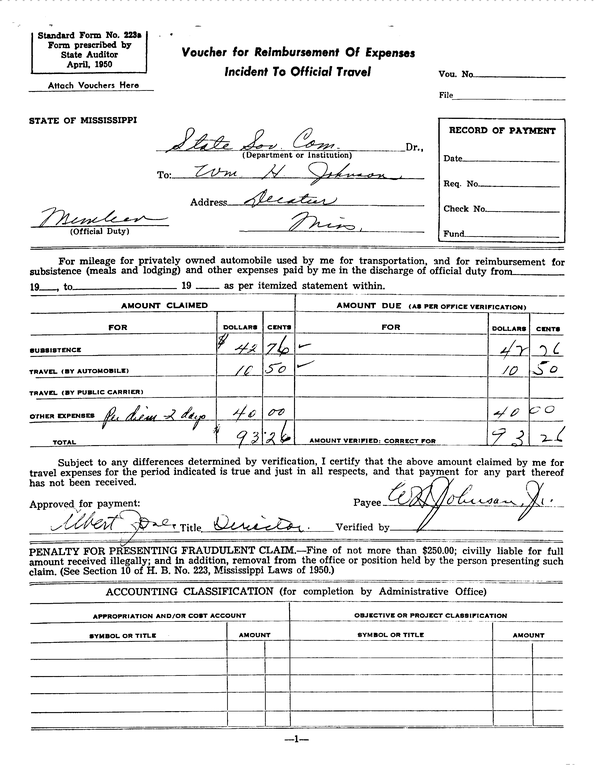 Standard Form No. 223a
Form prescribed by
State Auditor
April, 1950
Attach Vouchers Here
Voucher for Reimbursement Of Expenses
Incident To Official Travel
Vou. No.
File
STATE OF MISSISSIPPI
State Sov. Com. Dr.,
(Department or Institution)
To: Wm H. Johnson
Address Decatur
Miss.
(Official Duty)
RECORD OF PAYMENT
Date
Req. No.
Check No.
Fund
For mileage for privately owned automobile used by me for transportation, and for reimbursement for
subsistence (meals and lodging) and other expenses paid by me in the discharge of official duty from
19 , to 19 as per itemized statement within.
AMOUNT CLAIMED AMOUNT DUE (AS PER OFFICE VERIFICATION)
FOR DOLLARS CENTS FOR DOLLARS CENTS
SUBSISTENCE $ 42 76 ✓ 42 76
TRAVEL (BY AUTOMOBILE) 10 50 ✓ 10 50
TRAVEL (BY PUBLIC CARRIER)
OTHER EXPENSES Per diem - 2 days 40 00 40 00
TOTAL $ 93 26 AMOUNT VERIFIED: CORRECT FOR 93 26
Subject to any differences determined by verification, I certify that the above amount claimed by me for
travel expenses for the period indicated is true and just in all respects, and that payment for any part thereof
has not been received.
Approved for payment: Payee W H Johnson, Jr.
Albert Jones Title Director. Verified by
PENALTY FOR PRESENTING FRAUDULENT CLAIM.—Fine of not more than $250.00; civilly liable for full
amount received illegally; and in addition, removal from the office or position held by the person presenting such
claim. (See Section 10 of H. B. No. 223, Mississippi Laws of 1950.)
ACCOUNTING CLASSIFICATION (for completion by Administrative Office)
APPROPRIATION AND/OR COST ACCOUNT OBJECTIVE OR PROJECT CLASSIFICATION
SYMBOL OR TITLE AMOUNT SYMBOL OR TITLE AMOUNT
—1—